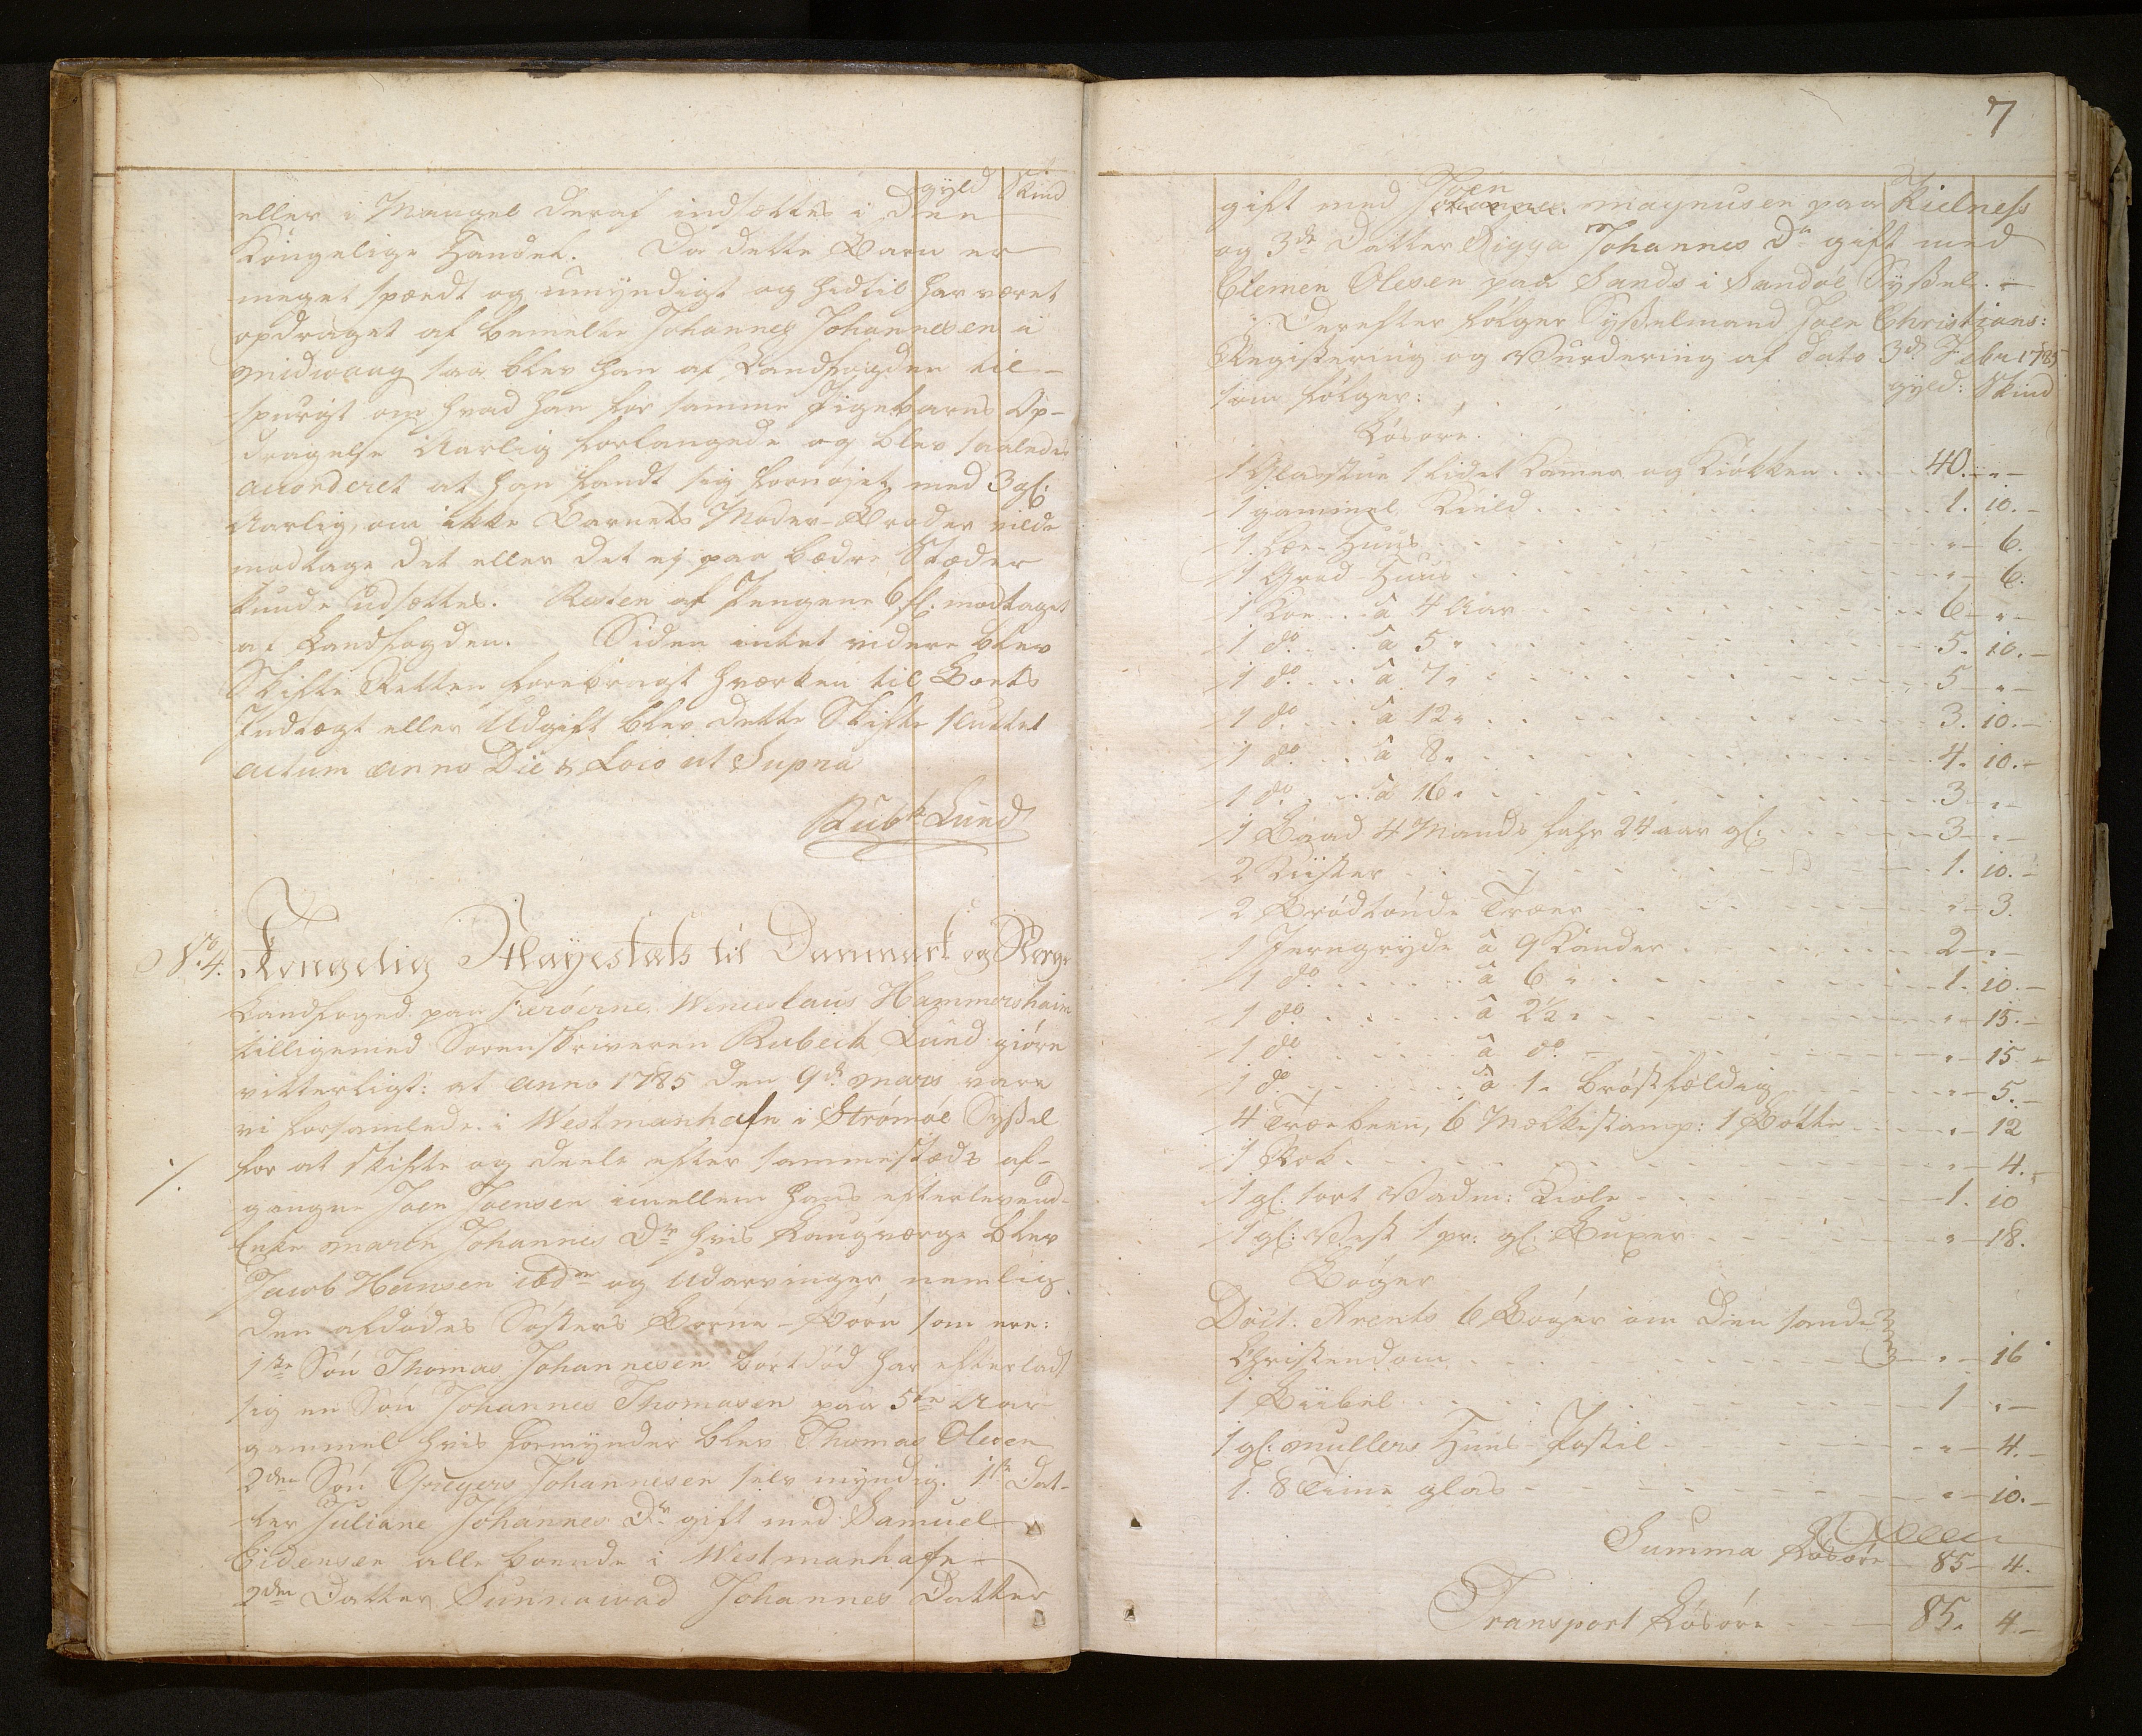 gyld Skind
eller i Mangel deraf indsættes i den
Kongelige Handel. Da dette Barn er
meget spædt og umyndigt og hidtil har været
opdraget af bemelte Johannes Johannesen i
midwaag saa blev han af Landfogden til-
spurgt om hvad han for samme Pigebarns Op-
dragelse Aarlig forlangede og blev saaledes
accorderet at han fandt sig fornøjet med 3 gl:
Aarlig, om ikke Barnets Moder-Broder vilde
modtage det eller det ej paa bædre Stæder
kunde udsættes. Resten af Pengene 6 fl. modtaget
af Landfogden. Siden intet videre blev
Skifte Retten forebragt hværken til Boets
Indtægt eller Udgift blev dette Skifte sluttet
actum anno Die & Loco ut Supra
Rubk Lund
No. 4. Kongelig Mayestets til Danmark og Norge
Landfoged paa Færöerne Wenceslaus Hammershaimb
tilligemed Sorenskriveren Rubeck Lund giöre
vitterligt: at anno 1785 den 9de mars vare
vi forsamlede i Westmanhafn i Strömöe Syßel
for at skifte og deele efter sammestæds af-
gangne Joen Joensen imellem hans efterlevende
Enke maren Johannes Dr hvis Laugværge blev
Jacob Hansen ibdm og Udarvinger nemlig
den afdödes Sösters Borne-Börn som ere:
1ste Sön Thomas Johannesen bortdöd har efterladt
sig en Sön Johannes Thomasen paa 5te Aar
gammel hvis formynder blev Thomas Olesen
2den Sön Gregers Johannesen selv myndig. 1ste Dat-
ter Juliane Johannes Dr gift med Samuel
Eidensen alle boende i Westmanhafn
2den Datter Sunnawad Johannes Datter
7
gift med Joen magnusen paa Kielness
og 3de Datter Sigga Johannes Dr gift med
Clemen Olesen paa Sands i Sandöe Syßel.
Derefter fölger Syßelmand Joen Christians:
Registering og Vurdering af dato 3de Febr 1785
som fölger: gyld: Skind
Lösöre.
1 Glarstue 1 lidet Kamer og Kiökken 40. " -
1 gammel Kield 1. 10. -
1. Huus " - 6.
1 Huus " - 6.
1 Koe à 4 Aar 6 - " -
1 do. à 5 " 5. 10. -
1 do. à 7 " 5 - " -
1 do à 12 " 3. 10. -
1 do. à 8 " 4. 10. -
1 do. à 16 " 3 - " -
1 Baad 4 Mands fahr 24 aar gl. 3 - " -
2 Kiister 1. 10. -
2 Træer " - 3.
1 Jerngryde à 9 Kander 2 - " -
1 do. à 6 " 1. 10. -
1 do. à 2½ " " - 15. -
1 do. à do. " - 15 -
1 do à 1 " bröstfældig " - 5. -
4 6 Melkestamp: 1 Bötte " - 12
1 Rok " - 4. -
1 gl: sort Vadm: Kiole 1. 10
1 gl: Vest 1 pr: gl: Buxer " - 18.
Böger
Doct. Arents 6 Böger om den sande
Christendom " - 16
1 Biibel 1 " -
1 gl: mullers Huus-Postil " - 4. -
1. 8 Time glas " - 10. -
Summa Lösöre 85 - 4.
Transport Lösöre 85. 4 -